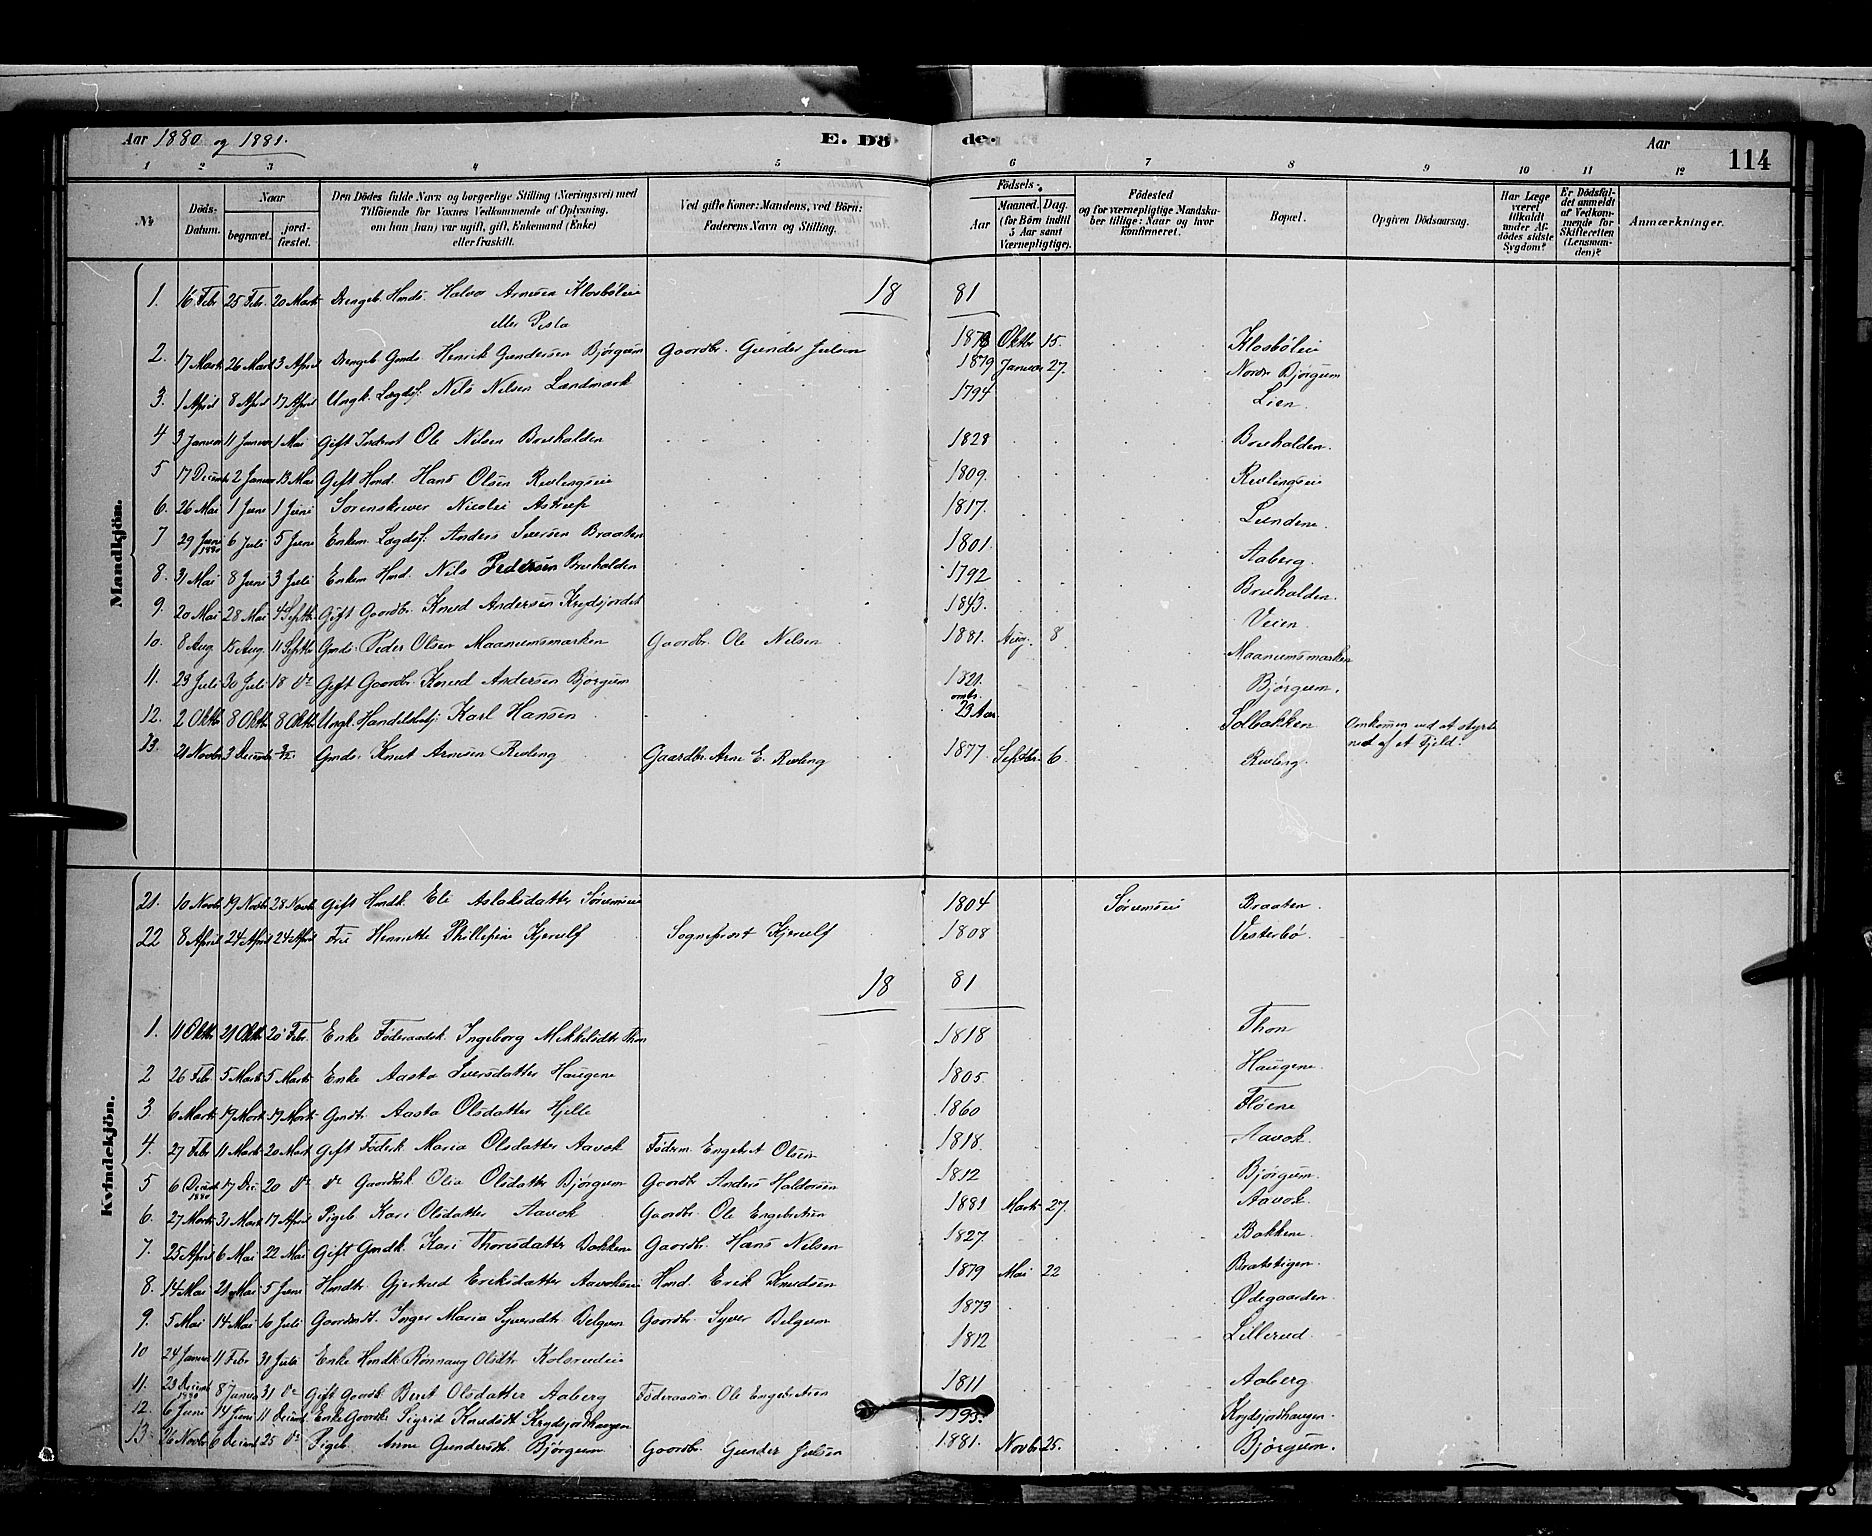 Aar 1880 og 1881.
E. Dö de.
Aar
114
1 2 3 4 5 6 7 8 9 10 11 12
№
Döds-Datum.
Naar
begravet.
jord-fæstet.
Den Dödes fulde Navn og borgerlige Stilling (Næringsvei) med
Tilföiende for Voxnes Vedkommende af Oplysning,
om han (hun) var ugift, gift, Enkemand (Enke)
eller fraskilt.
Ved gifte Koner: Mandens, ved Börn:
Faderens Navn og Stilling.
Födsels-
Aar
Maaned. Dag.
(for Börn indtil
5 Aar samt
Værnepligtige).
Födested
og for værnepligtige Mandska-
ber tillige: Naar og hvor
Konfirmeret.
Bopæl.
Opgiven Dödsaarsag.
Har Læge
været
tilkaldt
under Af-
dödes sidste
Sygdom?
Er Dödsfal-
det anmeldt
af Vedkom-
mende for
Skifteretten
(Lensman-
den)?
Anmærkninger.
Mandkjön.
18 81
1. 16 Febr 25 Febr. 20 Marts Drengeb. Hmds. Halvor Arnesen Klosbøleie 1878 Oktbr 15. Klosbøleie
eller Pesla
2. 17 Marts 26 Marts 3 April Drengeb Gmds. Henrik Gundersen Bjørgum Gaardbr. Gunder Julsen 1879 Januar 27. Nordr Bjørgum
3. 1 April 8 April 17 April Ungk. Lægdsl. Nils Nilsen Landmark 1794 Lien.
4 3 Januar 11 Januar 1 Mai Gift Inderst Ole Nilsen Bruhalden 1828 Bruhalden.
5 17 Decemb 2 Januar 13 Mai Gift Hmd. Hans Olsen Revlingseie 1809. Revlingseie
6. 26 Mai 1 Juni 1 Juni Sorenskriver Nicolai Astrup 1817. Lundene.
7 29 Juni 1880 6 Juli 5 Juni Enkem. Lægdsl. Anders Iversen Braaten 1801. Aaberg.
8. 31 Mai 8 Juni 3 Juli Enkem Hmd. Nils Pedersen Bruhalden 1792 Bruhalden.
9. 20 Mai 28 Mai 4 Septbr Gift Gaardbr. Knud Andersen Krydsjordet 1843. Veien.
10. 8 Aug. 15 Aug. 11 Septbr Gmds. Peder Olsen Maanumsmarken Gaardbr. Ole Nilsen 1881. Aug. 8. Maanumsmarken
11. 23 Juli 30 Juli 18 do Gift Gaardbr. Knud Andersen Bjørgum 1821. Bjørgum.
12. 2 Oktbr 8 Oktbr 8 Oktbr Ungk. Handelsbetj. Karl Hansen omtr. 23 Aar Solbakken Omkommen ved at styrte
ned af et Fjeld.
13. 21 Novbr 3 Decemb 3/12. Gmds. Knut Arnesen Revling Gaardbr. Arne E. Revling 1877 Septbr. 6. Revling.
Kvindekjön.
21. 10 Novbr 19 Novbr 28 Novbr Gift Hmdk Eli Aslaksdatter Sørumseie 1804 Sørumseie Braaten.
22 8 April 24 April 24 April Frü Henriette Phillipine Kjerulf Sogneprost Kjerulf 1808 Vesterbø.
18 81
1. 11 Oktbr 21 Oktbr 20 Febr. Enke Føderaadsk. Ingeborg Mikkelsdtr Thon 1818 Thon
2 26 Febr 5 Marts 5 Marts Enke Aasta Iversdatter Haugene 1805. Haugene.
3. 6 Marts 19 Mart. 19 Mart. Gmdtr. Aasta Olsdatter Hjelle 1860 Fløene
4. 27 Febr 11 Marts 20 Mart Gift Føderk Maria Olsdatter Aavok Føderm. Engebret Olsen 1818. Aavok.
5 6 Decemb 1880 17 Dec. 20 do do Gaardbrk Olia Olsdatter Bjørgum Gaardbr. Anders Haldorsen 1812 Bjørgum.
6. 27 Marts 31 Marts 17 April Pigeb. Kari Olsdatter Aavok Gaardbr. Ole Engebretsen 1881 Marts 27. Aavok.
7. 25 April 6 Mai 22 Mai Gift Gmdk. Kari Thorsdatter Bakkene Gaardbr. Hans Nilsen 1827 Bakkene.
8. 14 Mai 21 Mai 5 Juni Hmdtr. Gjertrud Eriksdatter Aavokseie Hmd. Erik Knudsen 1879 Mai 22 Bratstigen.
9. 5 Mai 14 Mai 10 Juli Gaardmdt. Inger Maria Syversdtr. Belgum Gaardbr. Syver Belgum 1873 Ødegaarden.
10 24 Januar 11 Febr 31 Juli Enke Hmdk. Rønnaug Olsdtr Kolsrudeie 1812 Lillerud.
11. 23 Decemb 1880 8 Januar 31 do Gift Gaardbr Beret Olsdatter Aaberg Føderaadsm. Ole Engebretsen 1811 Aaberg.
12. 6 Juni 14 Juni 11 Decemb Enke Gaardbr. Sigrid Knudsdt Krydsjordhaugen Krydsjordhaugen.
13. 26 Novbr 6 Decemb 25 do Pigeb. Anne Gundersdtr. Bjørgum Gaardbr. Gunder Julsen 1881. Novb. 25. Bjørgum.